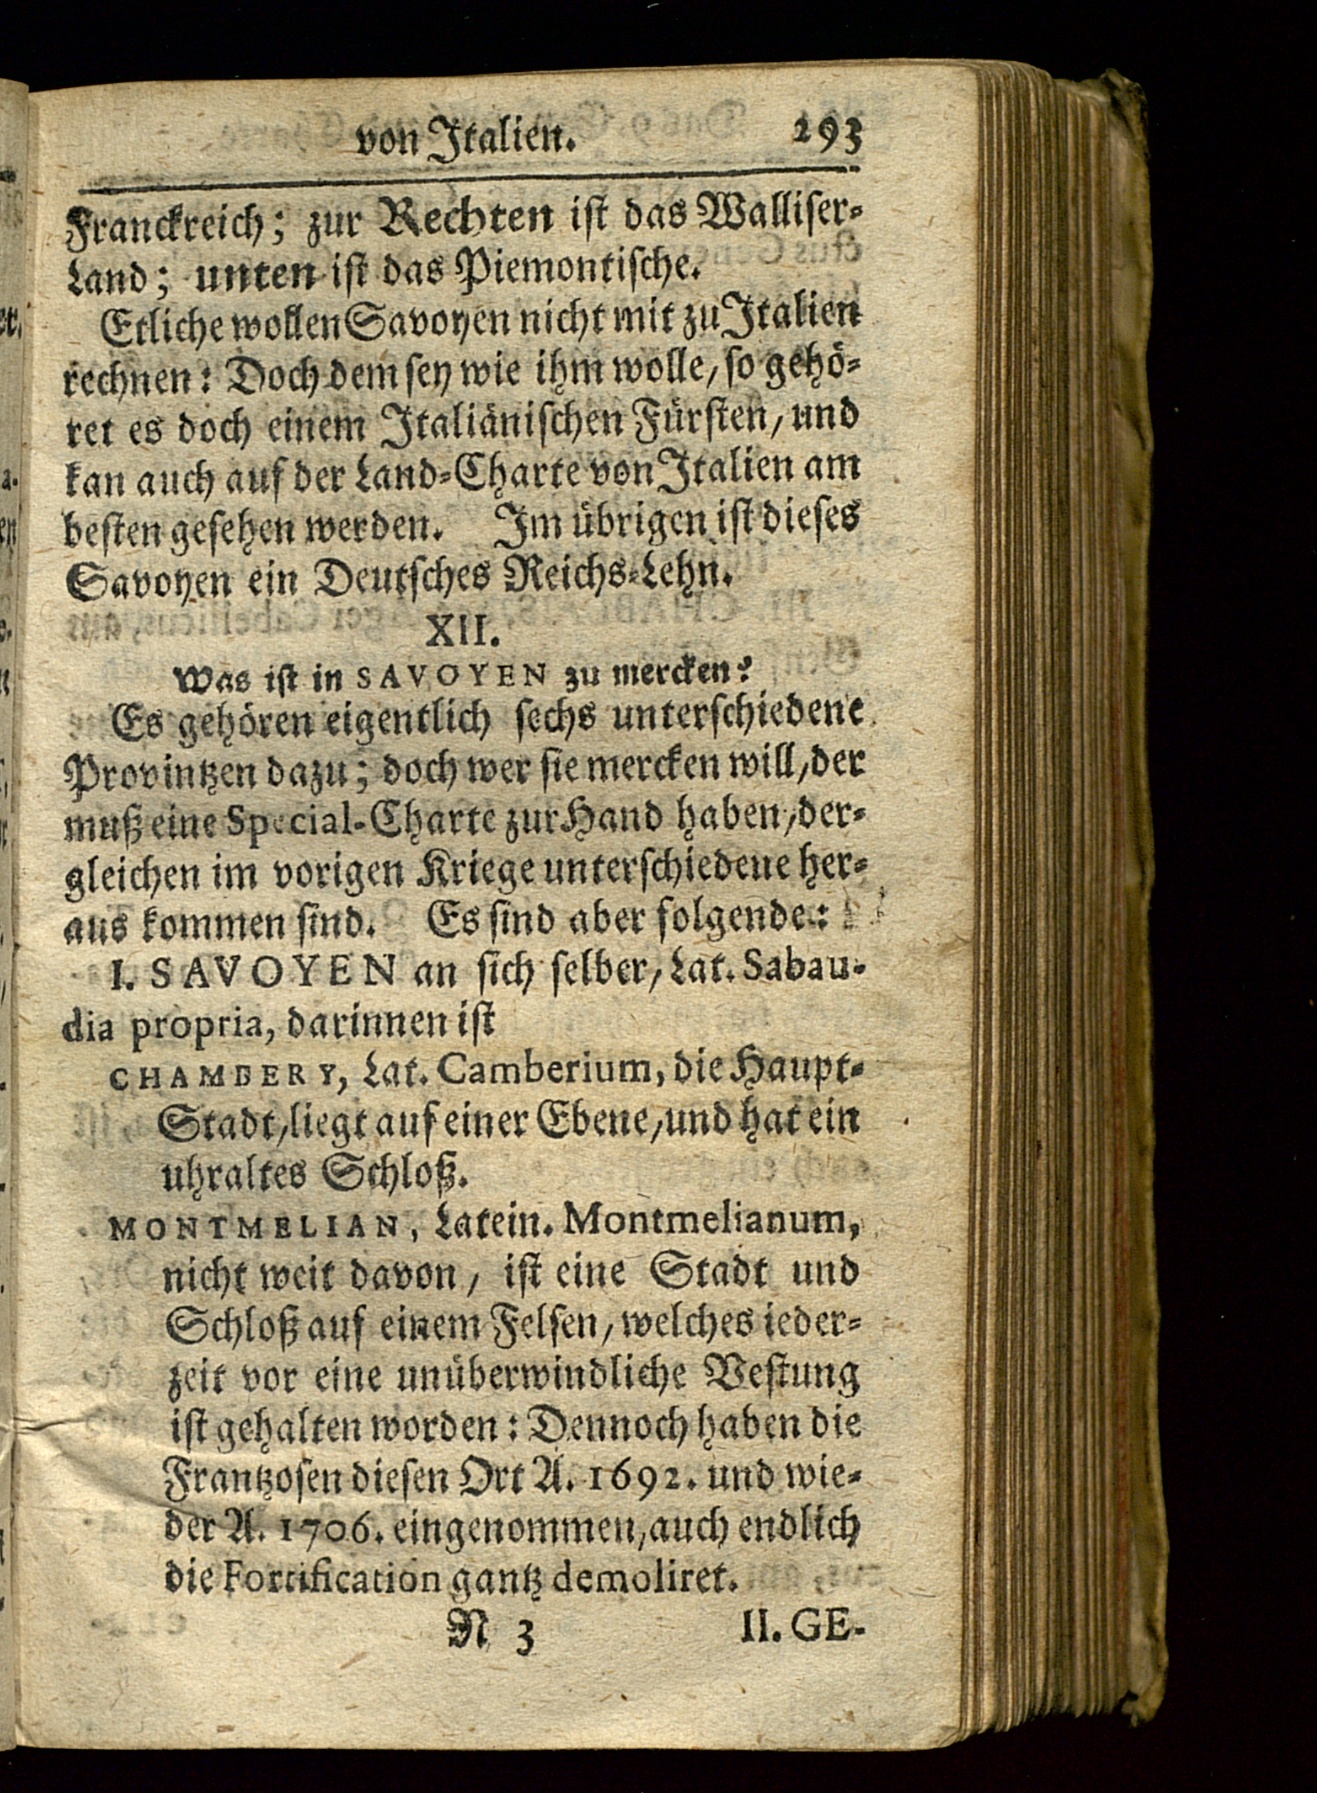 von Italien. 293
Franckreich; zur Rechten ist das Walliser-
Land; unten ist das Piemontische.
Etliche wollen Savoyen nicht mit zu Italien
rechnen: Doch dem sey wie ihm wolle, so gehö-
ret es doch einem Italiänischen Fürsten, und
kan auch auf der Land-Charte von Italien am
besten gesehen werden. Im übrigen ist dieses
Savoyen ein Deutsches Reichs-Lehn.
XII.
Was ist in SAVOYEN zu mercken?
Es gehören eigentlich sechs unterschiedene
Provintzen dazu; doch wer sie mercken will, der
muß eine Special-Charte zur Hand haben, der-
gleichen im vorigen Kriege unterschiedene her-
aus kommen sind. Es sind aber folgende:
I. SAVOYEN an sich selber, Lat. Sabau-
dia propria, darinnen ist
CHAMBERY, Lat. Camberium, die Haupt-
Stadt, liegt auf einer Ebene, und hat ein
uhraltes Schloß.
MONTMELIAN, Latein. Montmelianum,
nicht weit davon, ist eine Stadt und
Schloß auf einem Felsen, welches ieder-
zeit vor eine unüberwindliche Vestung
ist gehalten worden: Dennoch haben die
Frantzosen diesen Ort A. 1692. und wie-
der A. 1706. eingenommen, auch endlich
die Fortification gantz demoliret.
N 3 II. GE-